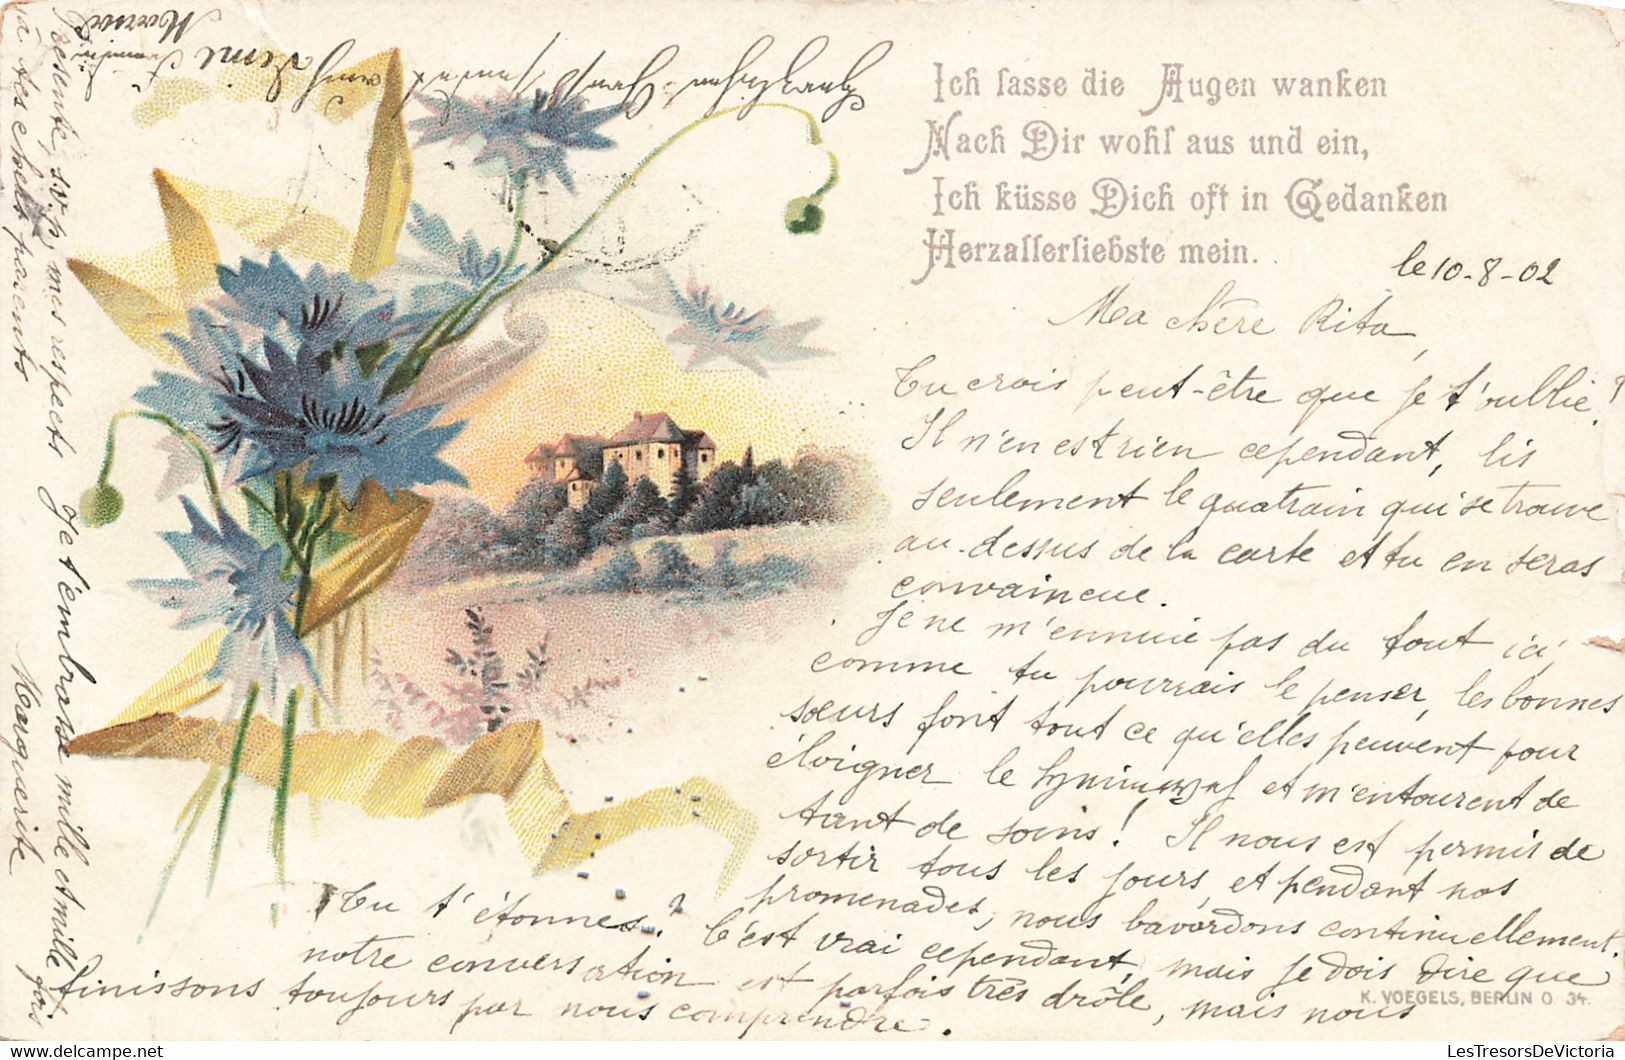 Ich lasse die Augen wanken
Nach Dir wohl aus und ein,
Ich küsse Dich oft in Gedanken
Herzallerliebste mein.
le 10-8-02
Ma chère Rita,
Tu crois peut-être que je t'oublie?
Il n'en est rien cependant, lis
seulement le quatrain qui se trouve
au-dessus de la carte et tu en seras
convaincue.
Je ne m'ennuie pas du tout ici,
comme tu pourrais le penser, les bonnes
sœurs font tout ce qu'elles peuvent pour
éloigner le et m'entourent de
tant de soins! Il nous est permis de
sortir tous les jours, et pendant nos
promenades, nous bavardons continuellement.
Tu t'étonnes? C'est vrai cependant, mais je dois dire que
notre conversation est parfois très drôle, mais nous
finissons toujours par nous comprendre.
K. VOEGELS, BERLIN O. 34.
Présente, s.v.p, mes respects
à tes chers parents
Je t'embrasse mille et mille fois
Marguerite
LesTresorsDeVictoria